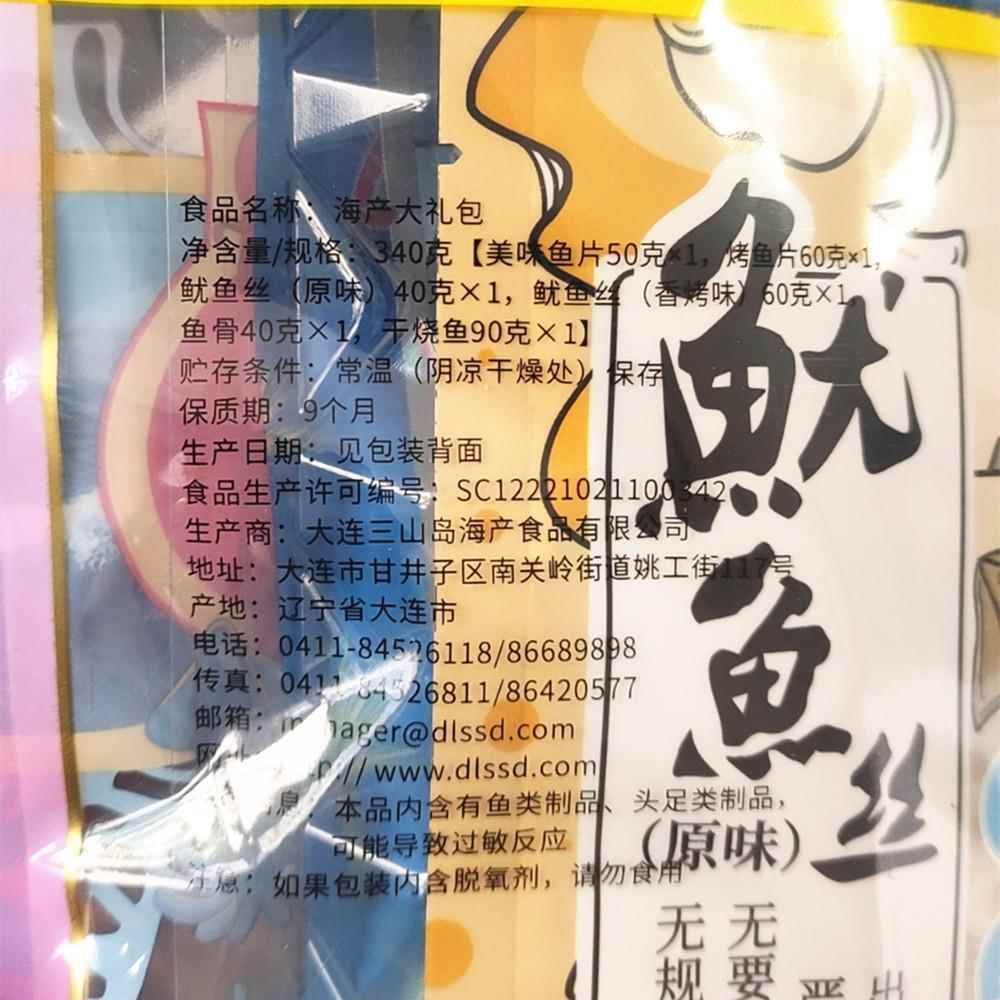 食品名称：海产大礼包
净含量/规格：340克【美味鱼片50克×1，烤鱼片60克×1，
鱿鱼丝（原味）40克×1，鱿鱼丝（香烤味）60克×1，
鱼骨40克×1，干烧鱼90克×1】
贮存条件：常温（阴凉干燥处）保存
保质期：9个月
生产日期：见包装背面
食品生产许可编号：SC12221021100342
生产商：大连三山岛海产食品有限公司
地址：大连市甘井子区南关岭街道姚工街117号
产地：辽宁省大连市
电话：0411-84526118/86689898
传真：0411-84526811/86420577
邮箱：manager@dlssd.com
www.dlssd.com
息：本品内含有鱼类制品、头足类制品，
可能导致过敏反应
注意：如果包装内含脱氧剂，请勿食用
魷魚丝
（原味）
无要
无规
严
出